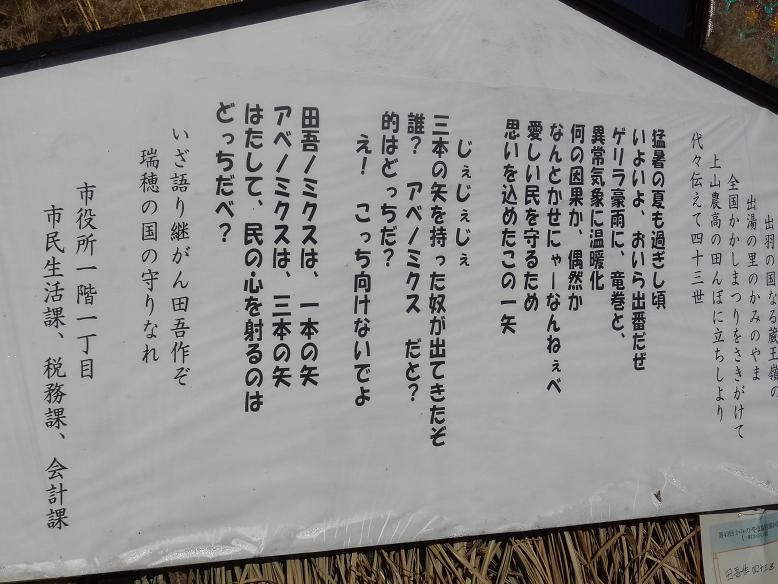 出羽の国なる蔵王嶺の
出湯の里のかみのやま
全国かかしまつりをさきがけて
上山農高の田んぼに立ちしより
代々伝えて四十三世
猛暑の夏も過ぎし頃
いよいよ、おいら出番だぜ
ゲリラ豪雨に、竜巻と、
異常気象に温暖化
何の因果か、偶然か
なんとかせにゃーなんねぇべ
愛しい民を守るため
思いを込めたこの一矢
じぇじぇじぇ
三本の矢を持った奴が出てきたぞ
誰? アベノミクス だと?
的はどっちだ?
え! こっち向けないでよ
田吾ノミクスは、一本の矢
アベノミクスは、三本の矢
はたして、民の心を射るのは
どっちだべ?
いざ語り継がん田吾作ぞ
瑞穂の国の守りなれ
市役所一階一丁目
市民生活課、税務課、会計課
田吾作 四十三世